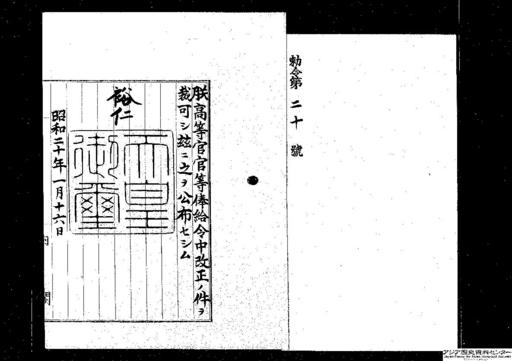 勅令第二十號
朕高等官官等俸給令中改正ノ件ヲ
裁可シ玆ニ之ヲ公布セシム
裕仁
天皇御璽
昭和二十年一月十六日
内閣
アジア歴史資料センター